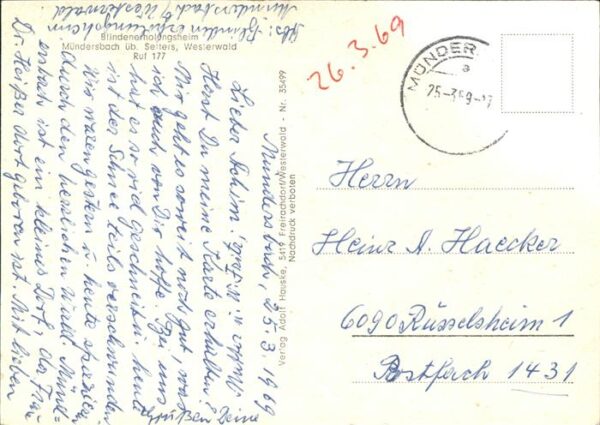 Abs: Blindenerholungsheim
Mündersbach ü/ Westerwald.
Blindenerholungsheim
Mündersbach üb. Selters, Westerwald
Ruf 177
Mündersbach, 25.3.1969
Lieber Achim!
Hast Du meine Karte erhalten?
Mir geht es soweit noch gut, was
ich auch von Dir hoffe. Bei uns
hat es so viel geschneit u. heute
ist der Schnee teils verschwunden
Wir waren gestern u. heute spazieren
durch den herrlichen Wald. Münders-
bach ist ein kleines Dorf, da Frau
Dr. Heißer dort geboren ist. Mit lieben
Grüßen Deine
Verlag Adolf Hauske, 5419 Freirachdorf/Westerwald - Nr. 35499
Nachdruck verboten
26.3.69
MÜNDER
a
25-3.69-17
Herrn
Heinz A. Haecker
6090 Rüsselsheim 1
Postfach 1431